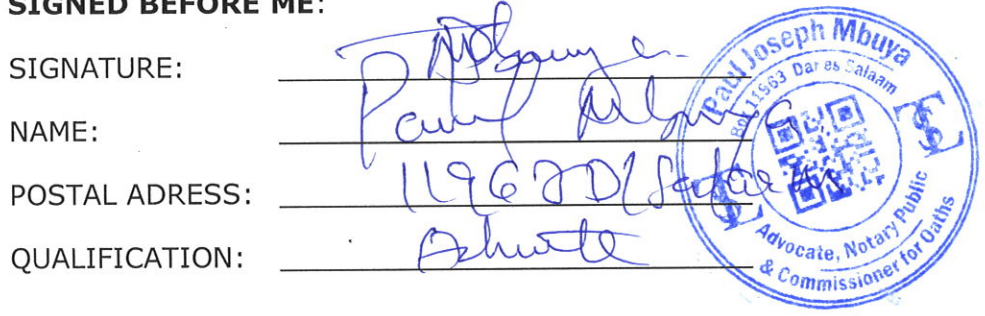 SIGNED BEFORE ME:
SIGNATURE:
NAME: Paul Mbuya
POSTAL ADRESS: 11963 D/Salaam
QUALIFICATION: Advocate
Paul Joseph Mbuya
Box 11963 Dar es Salaam
Advocate, Notary Public
& Commissioner for Oaths